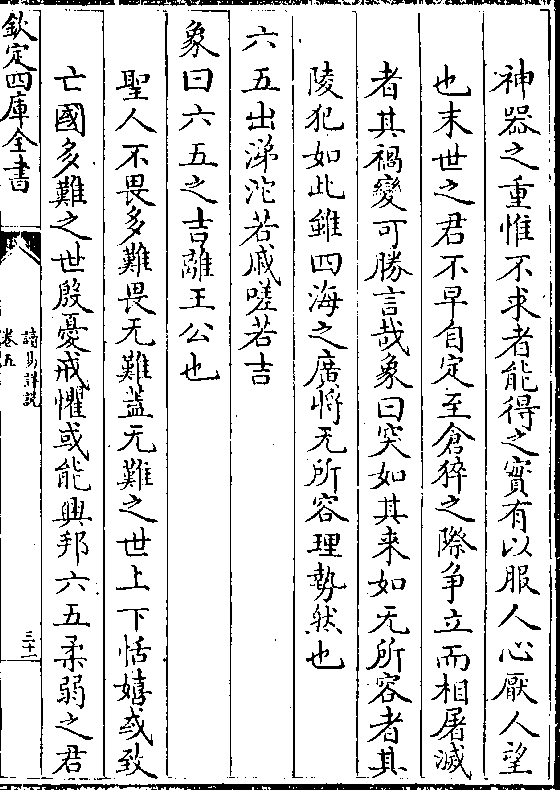 神器之重惟不求者能得之實有以服人心厭人望
也末世之君不早自定至倉猝之際争立而相屠滅
者其禍變可勝言哉象曰突如其来如无所容者其
陵犯如此雖四海之廣將无所容理勢然也
六五出涕沱若戚嗟若吉
象曰六五之吉離王公也
聖人不畏多難畏无難蓋无難之世上下恬嬉或致
亡國多難之世殷憂戒懼或能興邦六五柔弱之君
欽定四庫全書
讀易詳說
卷五
三十二